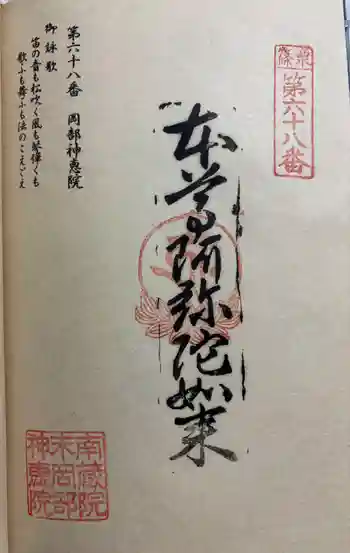 篠栗
第六十八番
本尊阿弥陀如来
第六十八番　岡部神惠院
御詠歌
笛の音も松吹く風も琴弾くも
歌ふも舞ふも法のこえごえ
南蔵院
末岡部
神恵院